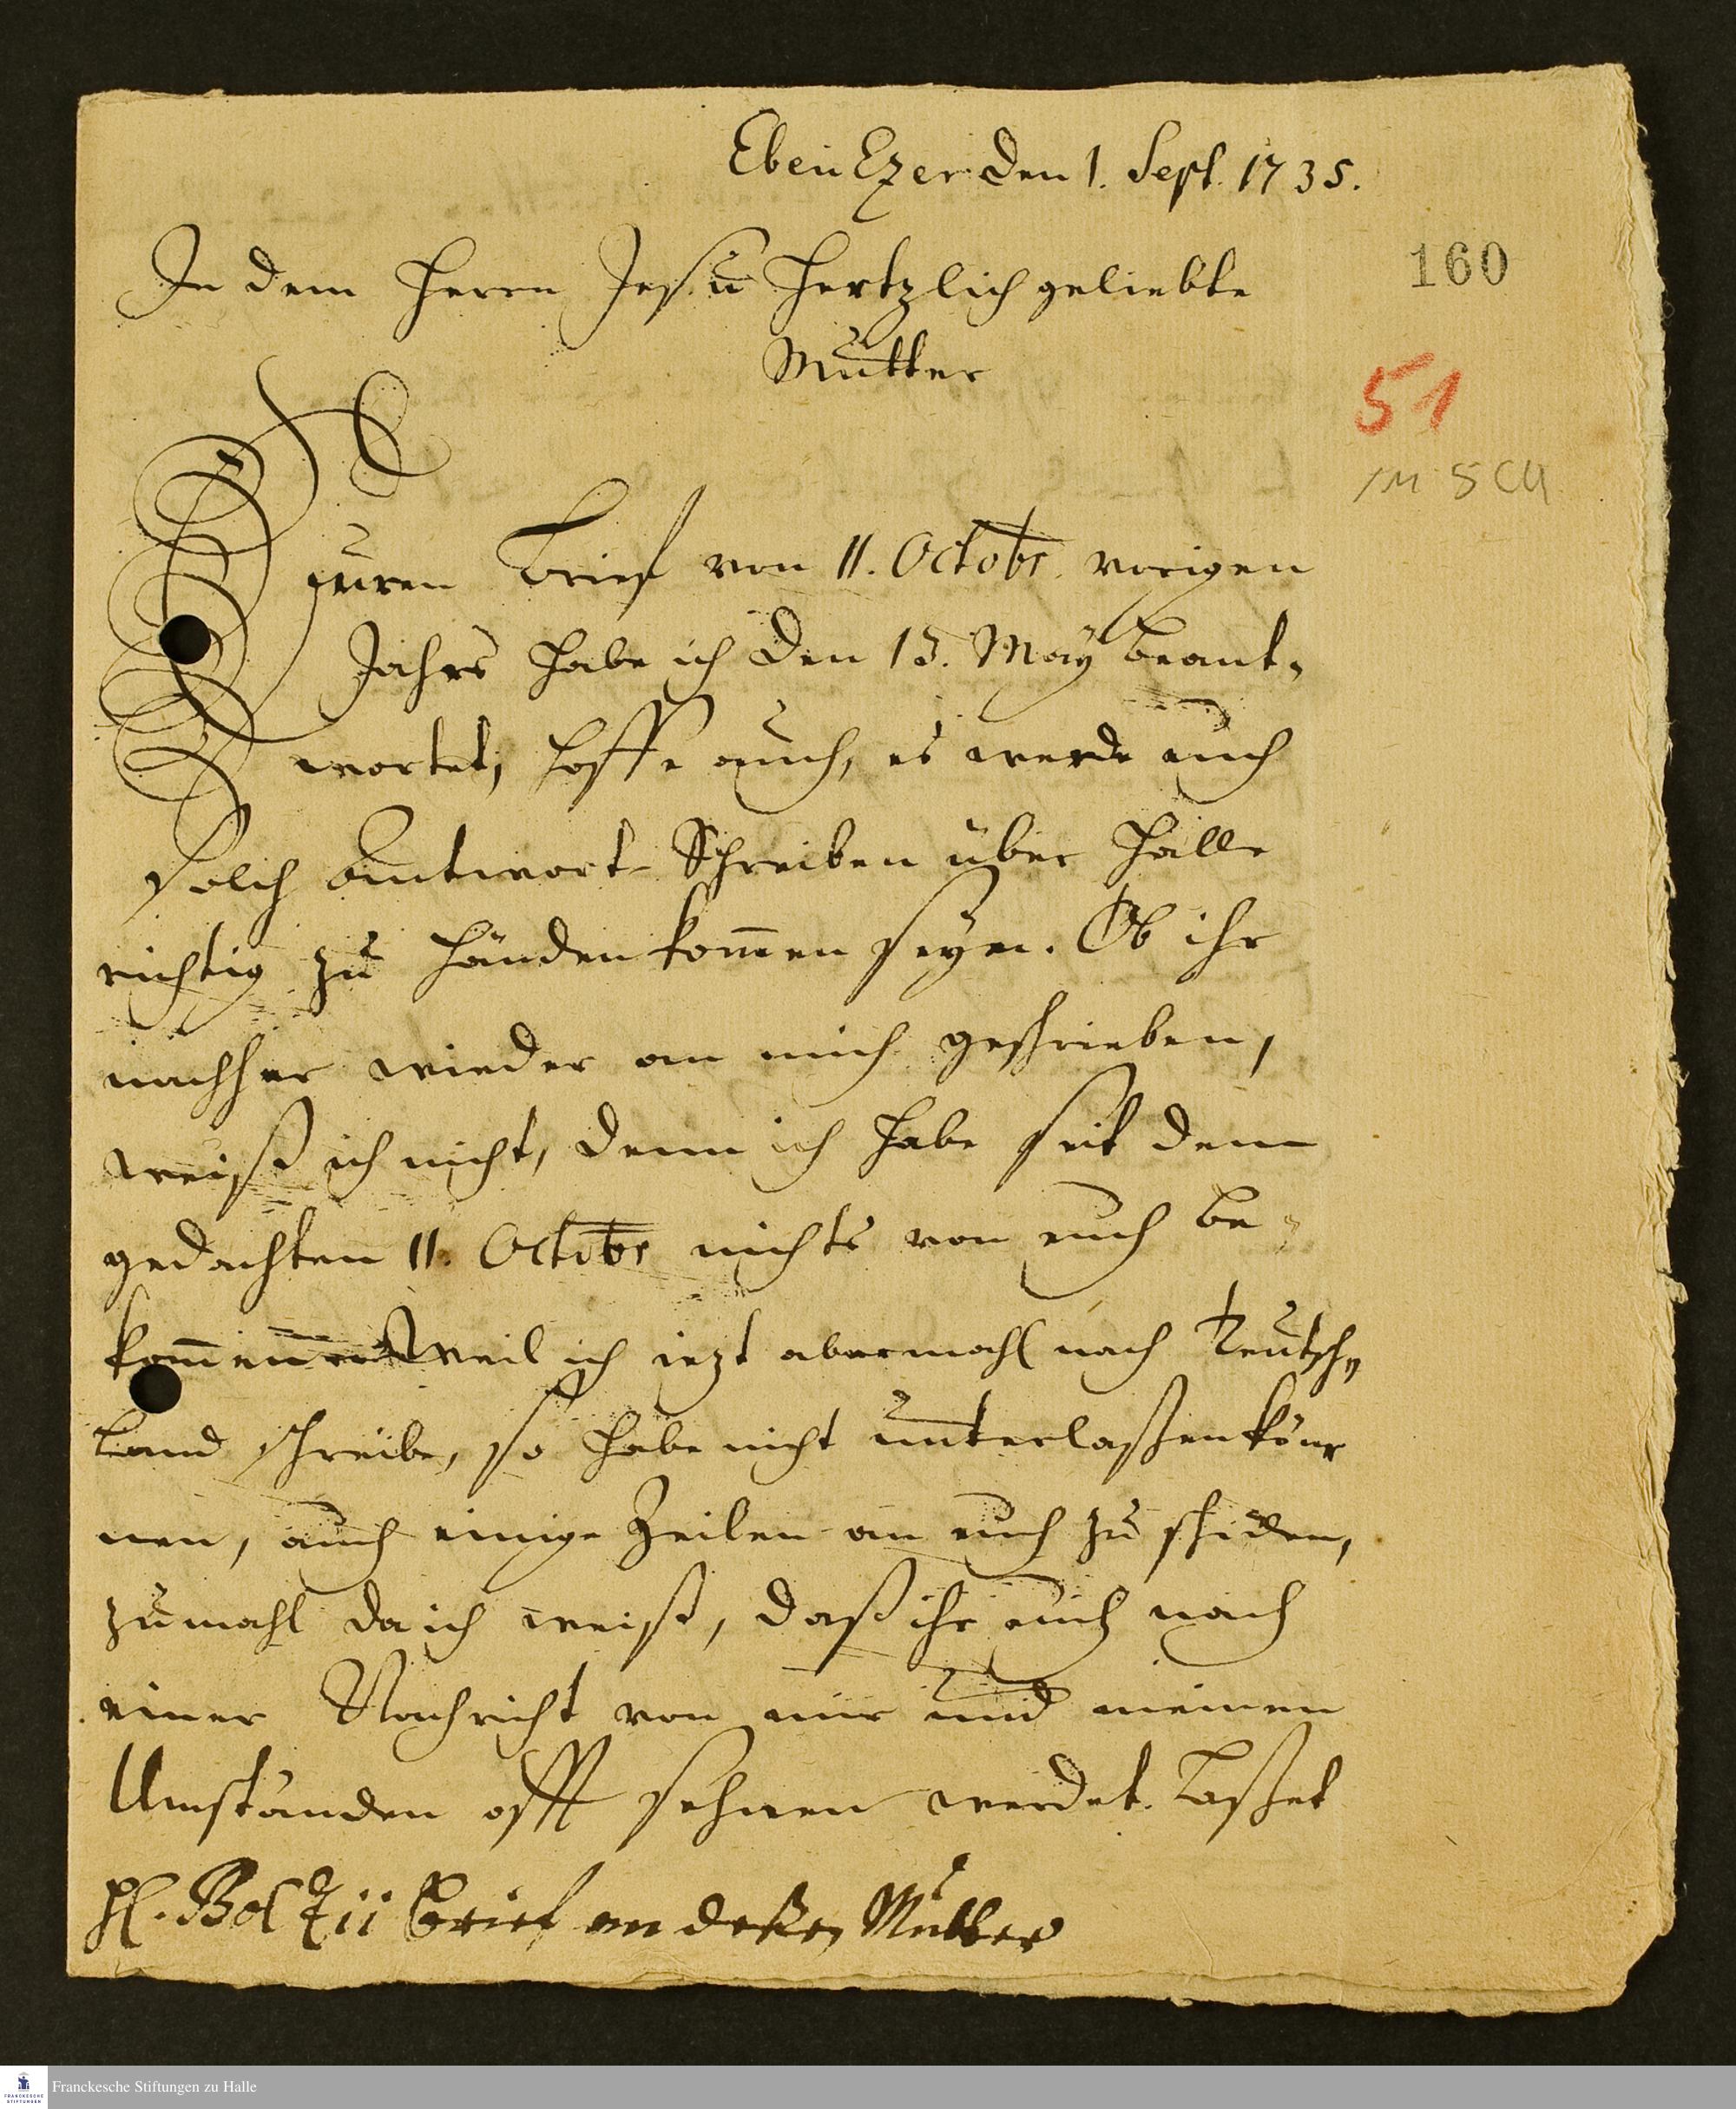 EbenEzer den 1. Sept. 1735.
In dem Herrn Jesu hertzlich geliebte
160
Mutter
51
Euren Brief von 11. Octobr. vorigen
Jahrs habe ich den 13. May beant-
wortet, hoffe auch, es werde euch
solch Antwort-Schreiben über Halle
richtig zu Händen kom̄en seyn. Ob ihr
nachher wieder an mich geschrieben,
weiß ich nicht, denn ich habe seit dem
gedachten 11. Octobr nichts von euch be-
kom̄en. Weil ich iezt abermahl nach Teutsch-
land schreibe, so habe nicht unterlaßen kön-
nen, auch einige Zeilen an euch zu schicken,
zumahl da ich weiß, daß ihr euch nach
einer Nachricht von mir und meinen
Umständen offt sehnen werdet. Laßet
H. Boltzii Brief an deßen Mutter
Franckesche Stiftungen zu Halle